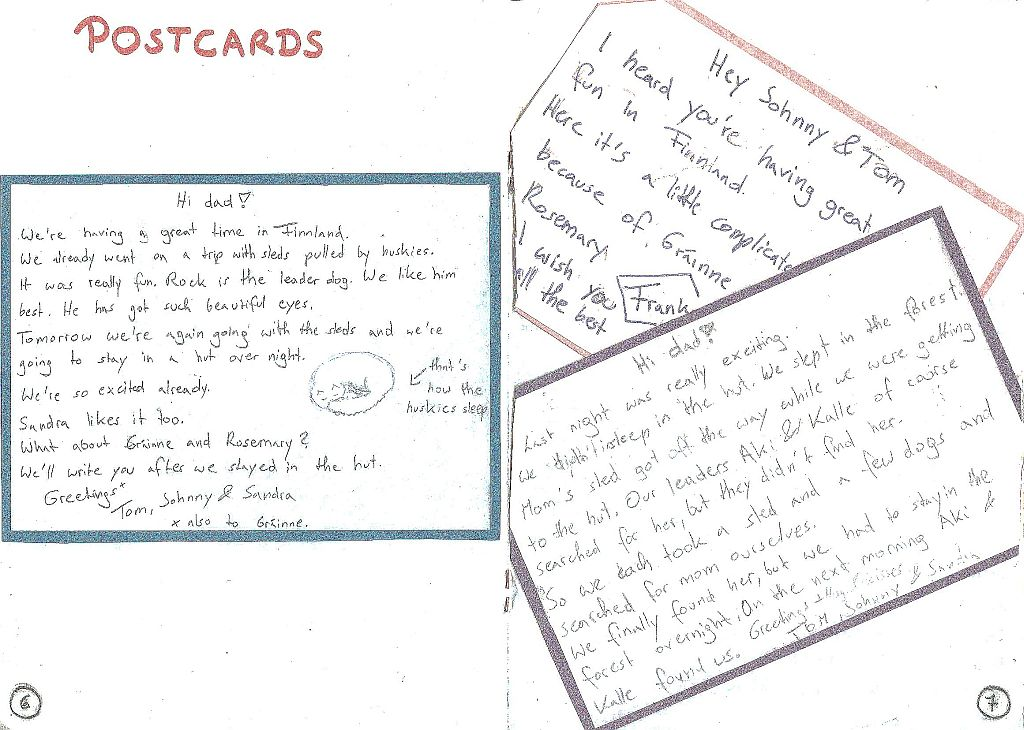 POSTCARDS
Hi dad!
We're having a great time in Finnland.
We already went on a trip with sleds pulled by huskies.
It was really fun. Rock is the leader dog. We like him
best. He has got such beautiful eyes.
Tomorrow we're again going with the sleds and we're
going to stay in a hut over night.
We're so excited already.
Sandra likes it too.
What about Gráinne and Rosemary?
We'll write you after we stayed in the hut.
Greetings*
Tom, Johnny & Sandra
x also to Gráinne.
that's
how the
huskies sleep
6
Hey Johnny & Tom
I heard you're having great
fun in Finnland.
Here it's a little complicate
because of Gráinne
Rosemary
I wish you
all the best
Frank
Hi dad!
Last night was really exciting.
We didn't sleep in the hut. We slept in the forest.
Mom's sled got off the way while we were getting
to the hut. Our leaders Aki & Kalle of course
searched for her, but they didn't find her.
So we each took a sled and a few dogs and
searched for mom ourselves.
We finally found her, but we had to stay in the
forest overnight. On the next morning Aki &
Kalle found us.
Greetings
Tom, Johnny & Sandra
7